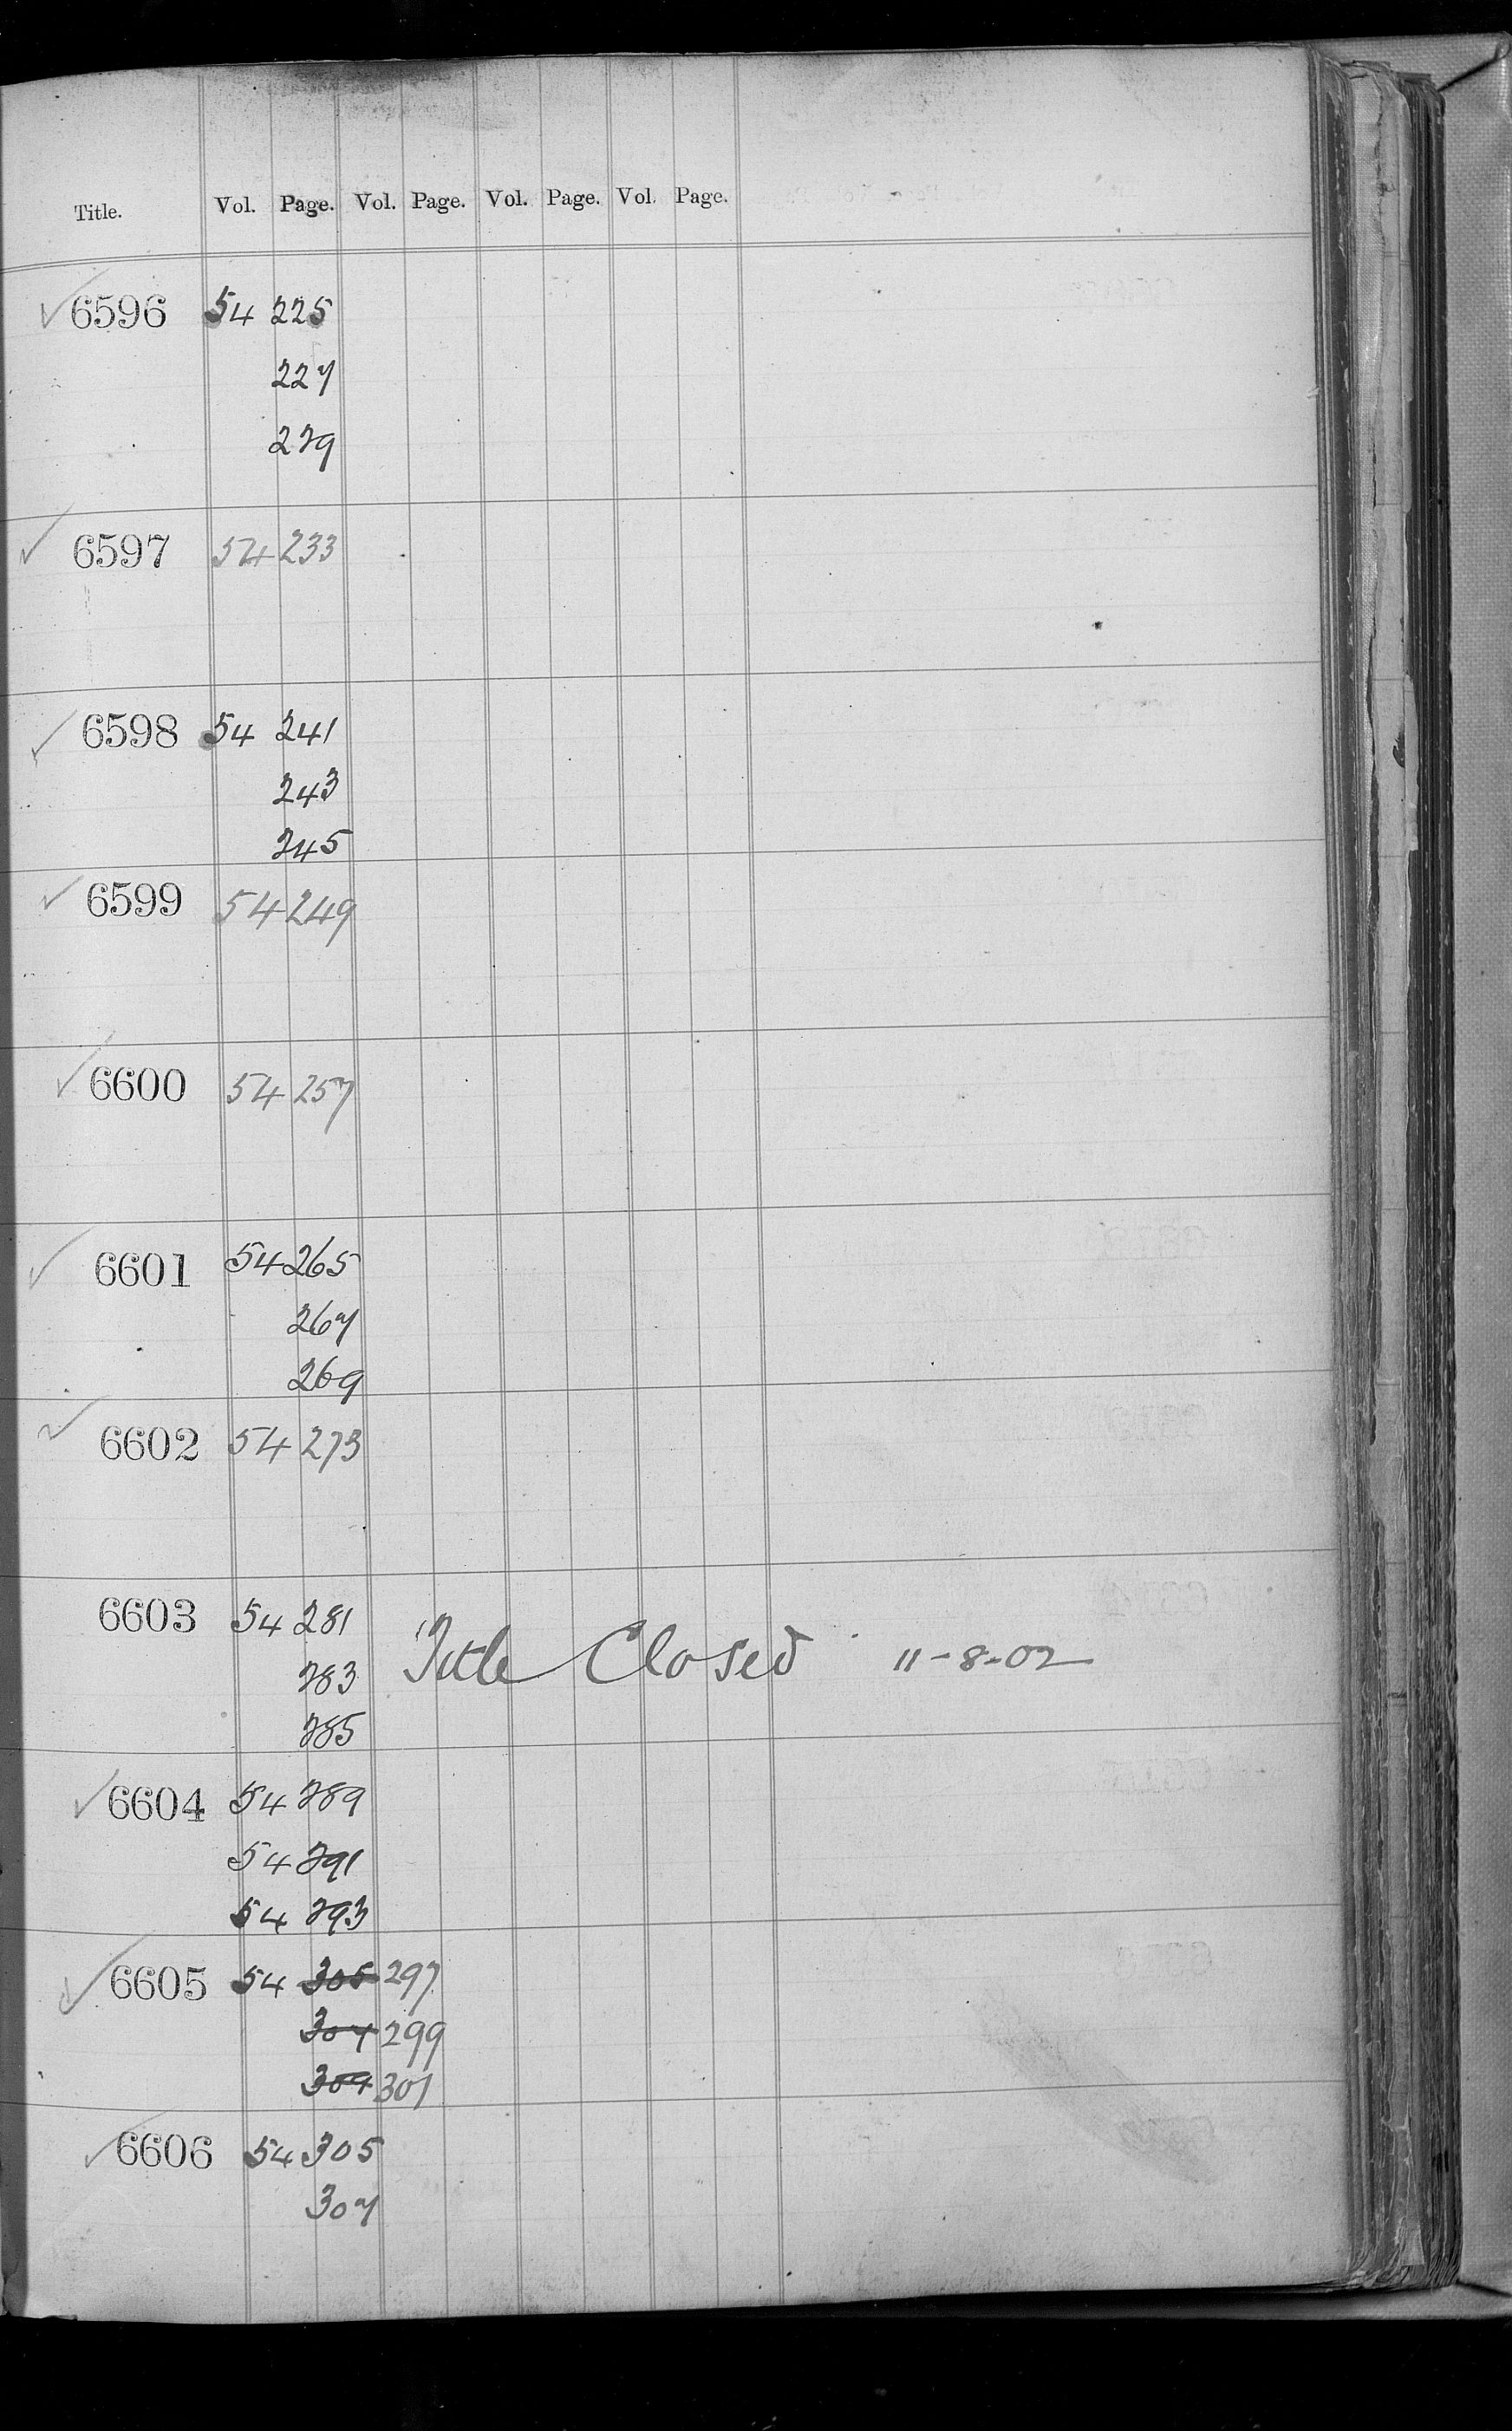 Title. Vol. Page. Vol. Page. Vol. Page. Vol. Page.
6596 54 225
227
229
6597 54 233
6598 54 241
243
245
6599 54 249
6600 54 257
6601 54 265
267
269
6602 54 273
6603 54 281
283 Title Closed 11-8-02
285
6604 54 289
54 291
54 293
6605 54 305 297
307 299
309 301
6606 54 305
307